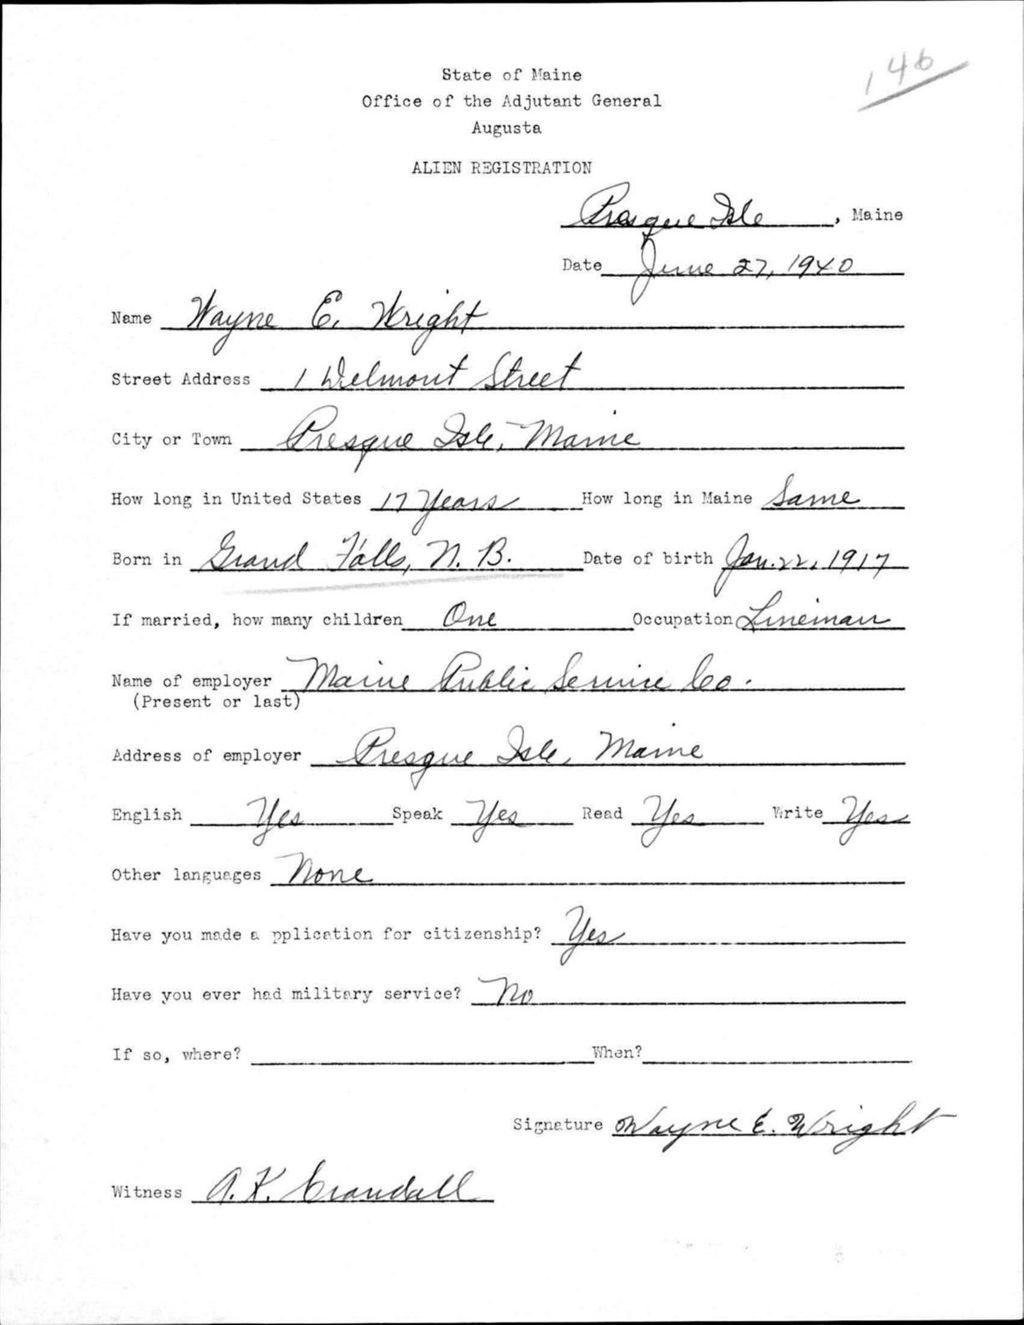 146
State of Maine
Office of the Adjutant General
Augusta
ALIEN REGISTRATION
Presque Isle, Maine
Date June 27, 1940
Name Wayne E. Wright
Street Address 1 Delmont Street
City or Town Presque Isle, Maine
How long in United States 17 Years How long in Maine Same
Born in Grand Falls, N. B. Date of birth Jan. 22, 1917
If married, how many children One Occupation Lineman
Name of employer Maine Public Service Co.
(Present or last)
Address of employer Presque Isle, Maine
English Yes Speak Yes Read Yes Write Yes
Other languages None
Have you made a pplication for citizenship? Yes
Have you ever had military service? No
If so, where? When?
Signature Wayne E. Wright
Witness A. K. Crandall